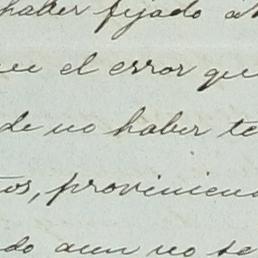 haber fijado at
ue el error qu
de no haber te
tos, proviniend
do aun no se